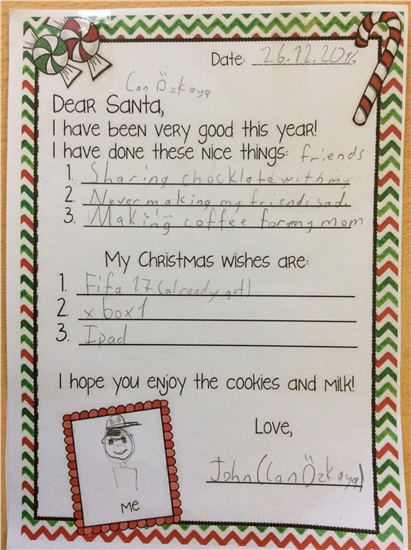 Date: 26.12.2016
Can Özkaya
Dear Santa,
I have been very good this year!
I have done these nice things: friends
1. Sharing chocklate with my
2. Never making my friends sad
3. Making coffee for my mom
My Christmas wishes are:
1. Fifa 17 (already got)
2. x box 1
3. Ipad
I hope you enjoy the cookies and milk!
Love,
John (Can Özkaya)
Me